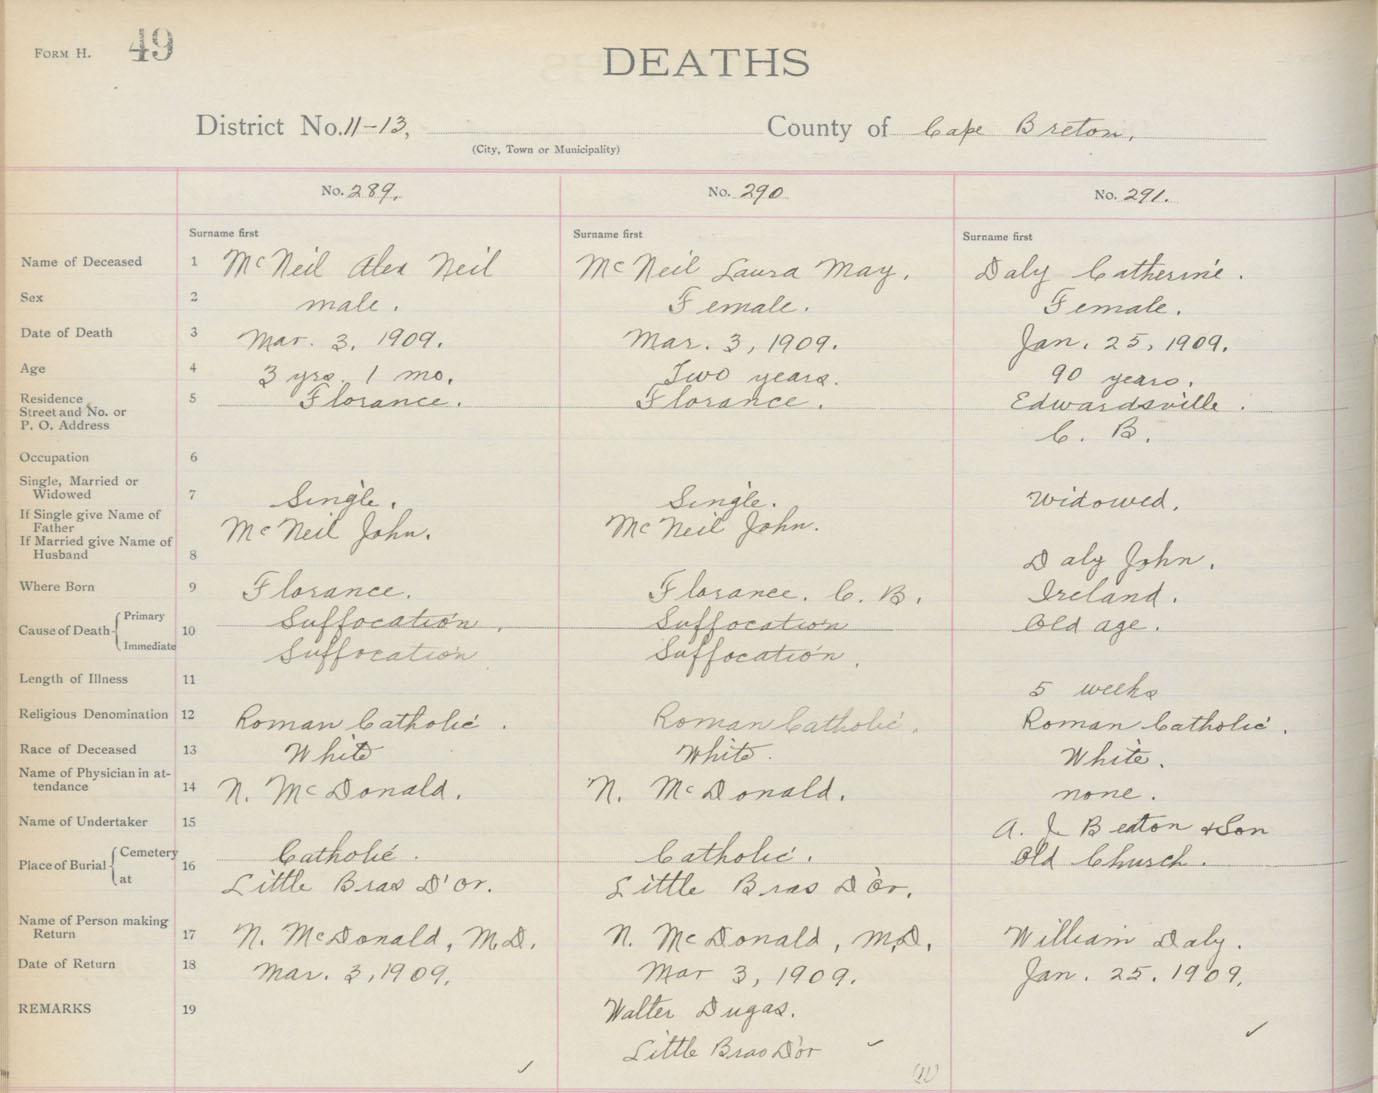 FORM H. 49
DEATHS
District No. 11-13, County of Cape Breton,
(City, Town or Municipality)
No. 289. No. 290 No. 291.
Surname first Surname first Surname first
Name of Deceased 1 McNeil Alex Neil McNeil Laura May. Daly Catherine.
Sex 2 male. Female. Female.
Date of Death 3 Mar. 3, 1909. Mar. 3, 1909. Jan. 25, 1909.
Age 4 3 yrs. 1 mo. Two years. 90 years.
Residence 5 Florance. Florance. Edwardsville.
Street and No. or
P. O. Address C. B.
Occupation 6
Single, Married or
Widowed 7 Single. Single. Widowed.
If Single give Name of
Father McNeil John. McNeil John.
If Married give Name of
Husband 8 Daly John.
Where Born 9 Florance. Florance. C. B. Ireland.
Cause of Death Primary 10 Suffocation. Suffocation Old age.
Immediate Suffocation Suffocation.
Length of Illness 11 5 weeks
Religious Denomination 12 Roman Catholic. Roman Catholic. Roman Catholic.
Race of Deceased 13 White White. White.
Name of Physician in at-
tendance 14 N. McDonald. N. McDonald. none.
Name of Undertaker 15 A. J. Beaton & Son
Place of Burial Cemetery 16 Catholic. Catholic. Old Church.
at Little Bras D'or. Little Bras D'or.
Name of Person making
Return 17 N. McDonald, M.D. N. McDonald, M.D. William Daly.
Date of Return 18 Mar. 3, 1909. Mar 3, 1909. Jan. 25. 1909.
REMARKS 19 Walter Dugas.
Little Bras D'or
(11)